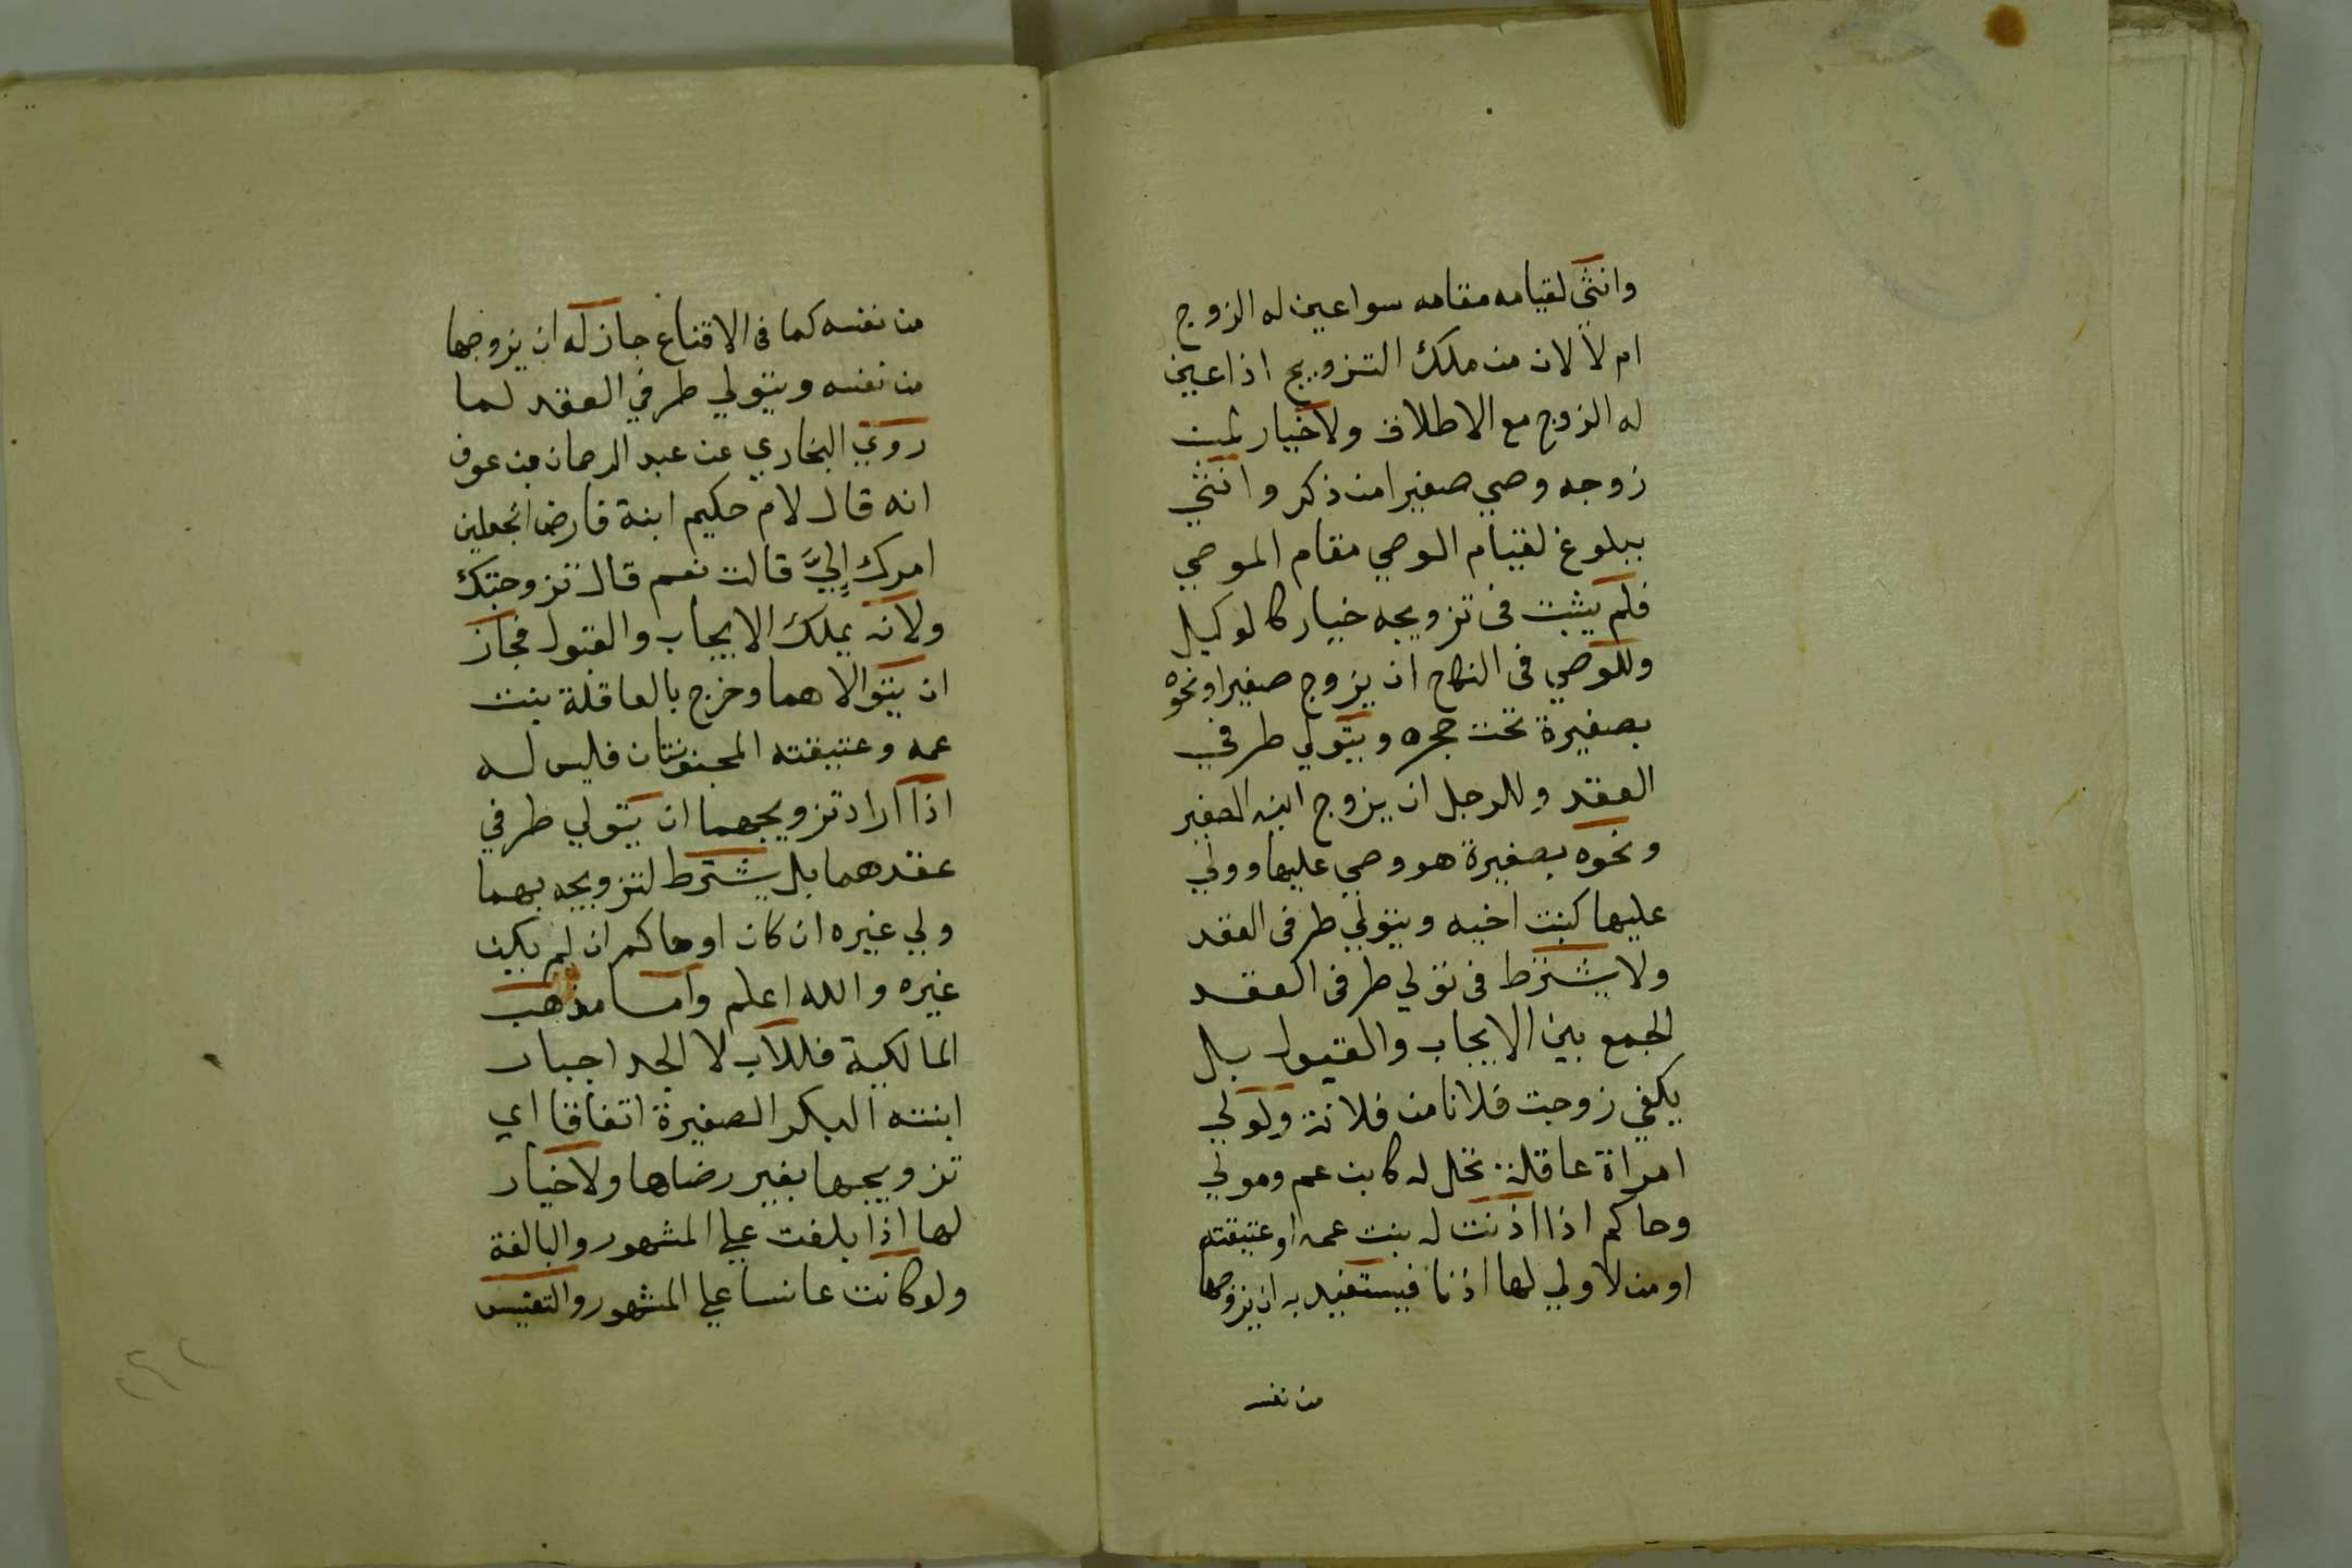 وانثي لقيامه مقامه سوا عين له الزوج
ام لا لان من ملك التزويج اذا عين
له الزوج مع الاطلاق ولا خيار لمن
زوجه وصي صغيرا من ذكر وانثي
ببلوغ لقيام الوصي مقام الموصي
فلم يثبت فى تزويجه خيار كالوكيل
وللوصي فى النكاح ان يزوج صغيرا ونحوه
بصغيرة تحت حجره ويتولي طرفي
العقد وللرجل ان يزوج ابنه الصغير
ونحوه بصغيرة هو وصي عليها وولي
عليها كبنت اخيه ويتولي طرفى العقد
ولا يشترط فى تولي طرفى العقد
الجمع بين الايجاب والقبول بل
يكفي زوجت فلانا من فلانة ولولي
امراة عاقلة تحل له كابن عم ومولي
وحاكم اذا اذنت له بنت عمه او عتيقته
او من لا ولي لها اذنا فيستفيد به ان يزوجها
من نفسه
من نفسه كما فى الاقناع جاز له ان يزوجها
من نفسه ويتولي طرفي العقد لما
روي البخاري عن عبد الرحمان بن عوف
انه قال لام حكيم ابنة قارض اتجعلين
امرك إليَّ قالت نعم قال تزوجتك
ولانه يملك الايجاب والقبول فجاز
ان يتوالاهما وخرج بالعاقلة بنت
عمه وعتيقته المجنونتان فليس له
اذا اراد تزويجهما ان يتولي طرفي
عقدهما بل يشترط لتزويجه بهما
ولي غيره ان كان او حاكم ان لم يكن
غيره والله اعلم واما مذهب
المالكية فللاب لا الجد اجبار
ابنته البكر الصغيرة اتفاقا اي
تزويجها بغير رضاها ولا خيار
لها اذا بلغت علي المشهور والبالغة
ولو كانت عانسا علي المشهور والتعنيس